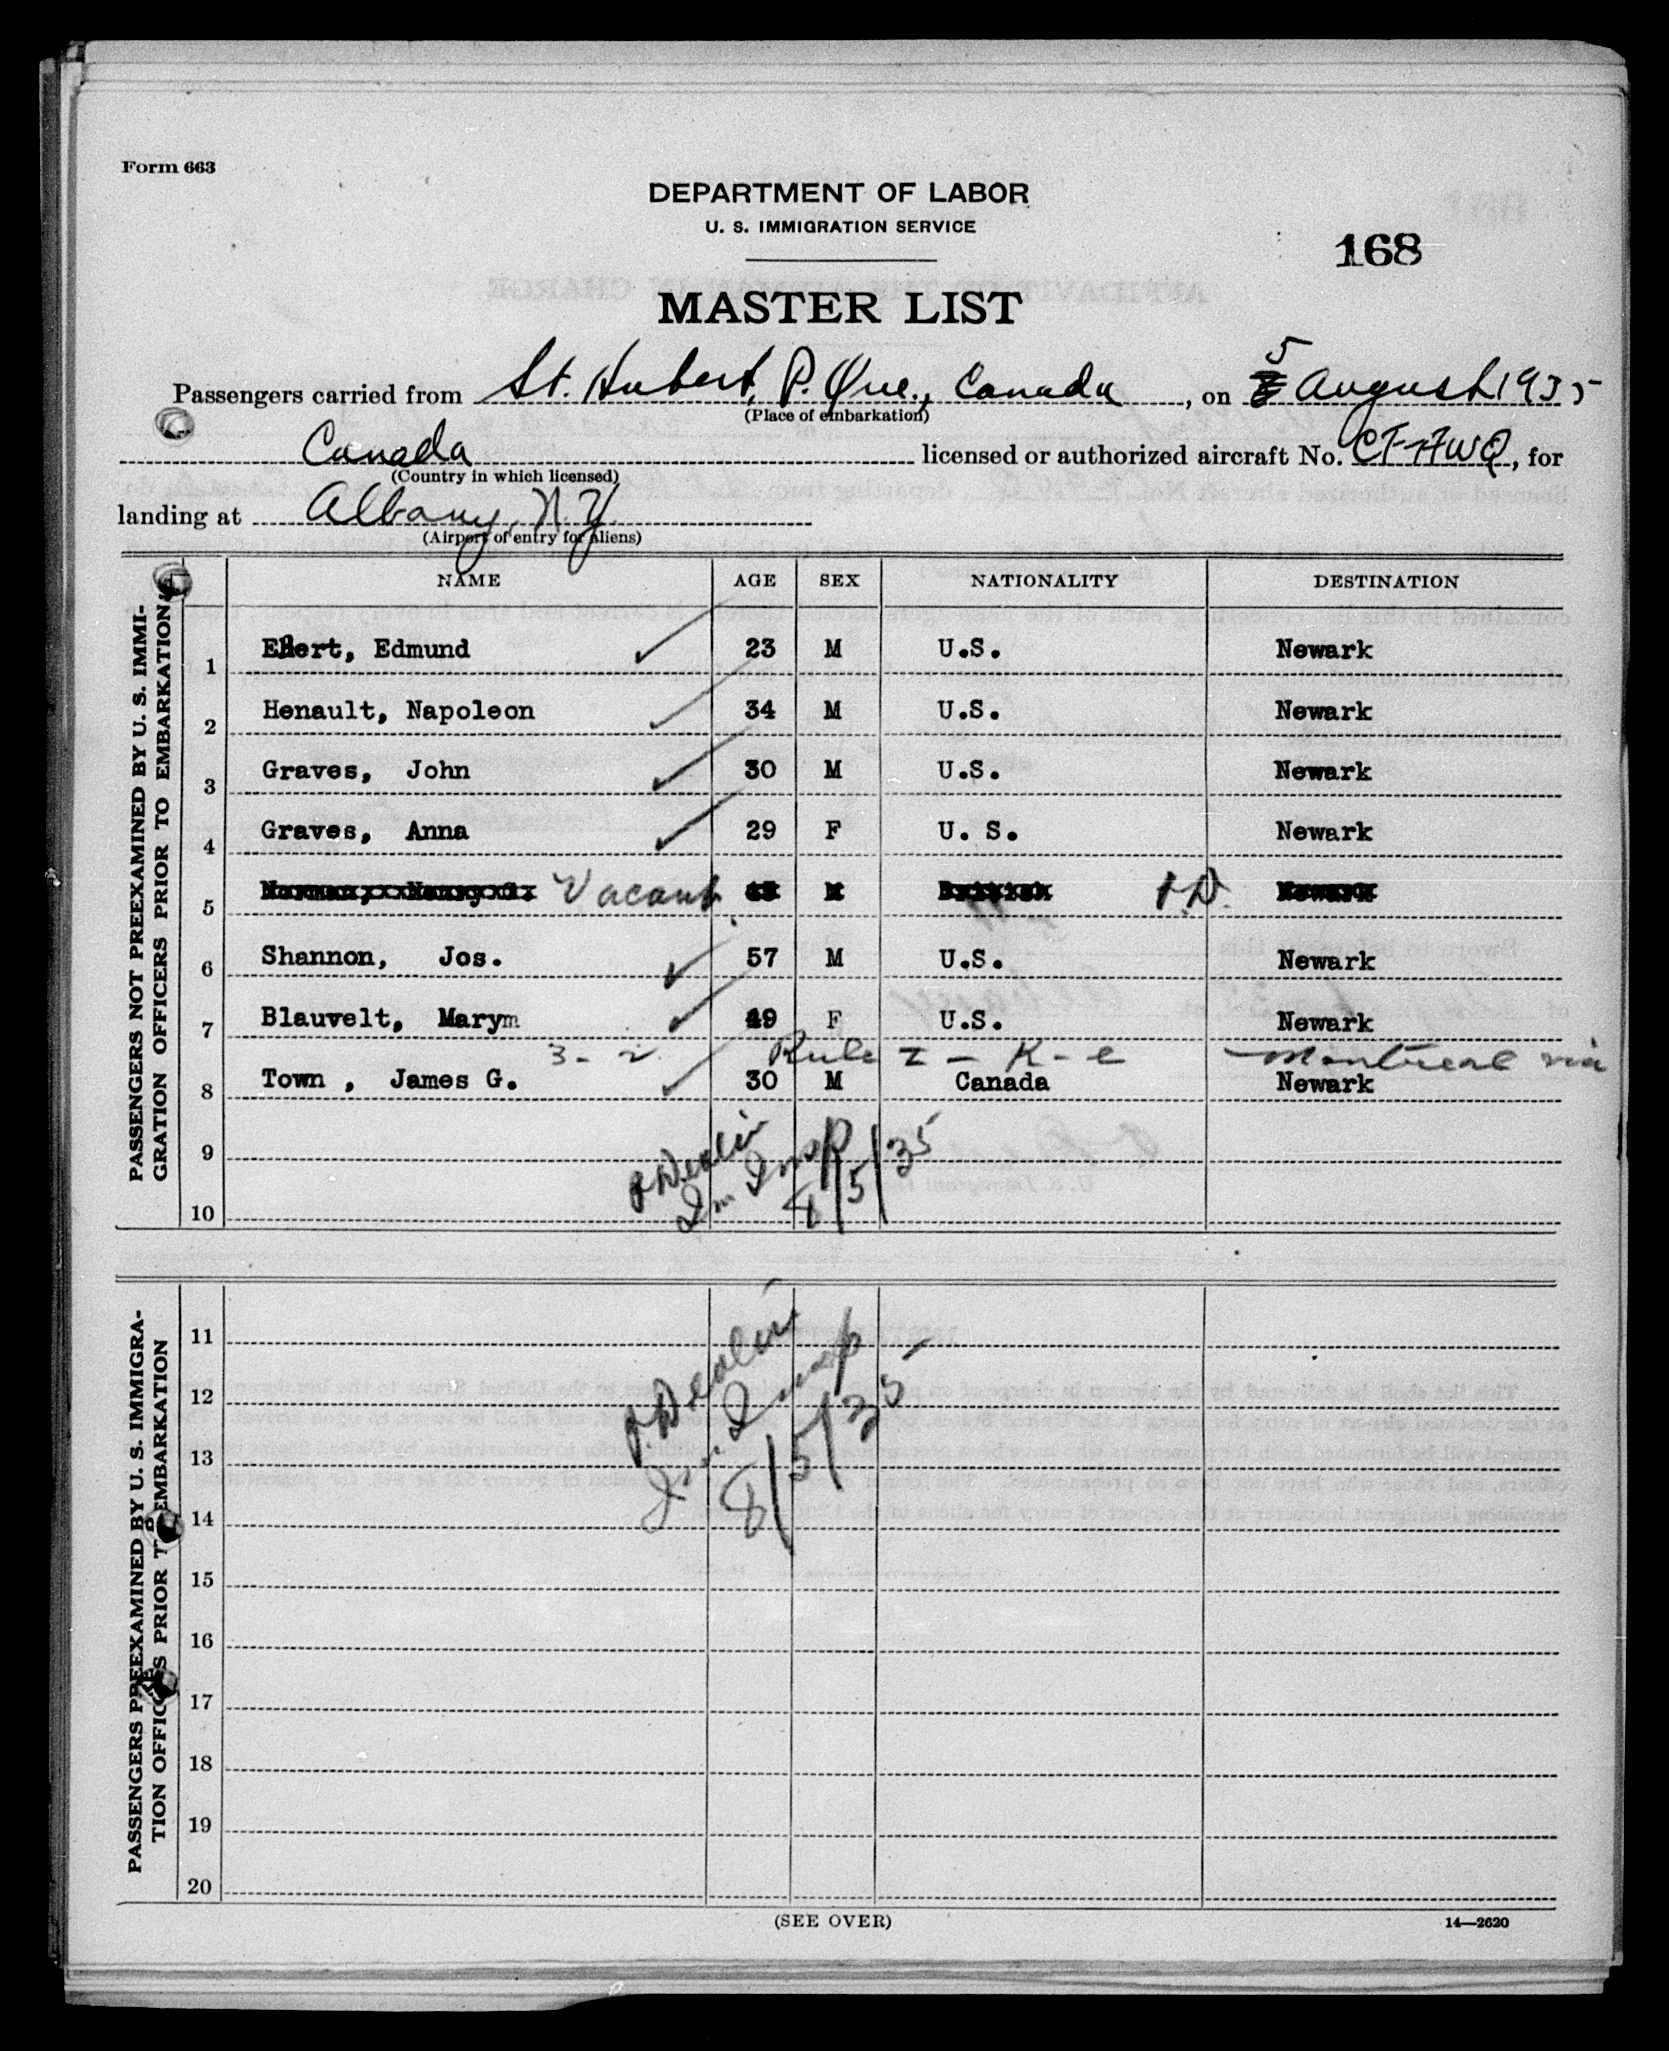 Form 663
DEPARTMENT OF LABOR
U. S. IMMIGRATION SERVICE
168
MASTER LIST
Passengers carried from St. Hubert, P. Que., Canada, on 5 August 1935
(Place of embarkation)
Canada licensed or authorized aircraft No. CF-AWQ, for
(Country in which licensed)
landing at Albany, N.Y.
(Airport of entry for aliens)
PASSENGERS NOT PREEXAMINED BY U. S. IMMIGRATION OFFICERS PRIOR TO EMBARKATION
NAME AGE SEX NATIONALITY DESTINATION
1 Ebert, Edmund 23 M U.S. Newark
2 Henault, Napoleon 34 M U.S. Newark
3 Graves, John 30 M U.S. Newark
4 Graves, Anna 29 F U. S. Newark
5 Vacant
6 Shannon, Jos. 57 M U.S. Newark
7 Blauvelt, Mary 49 F U.S. Newark
3-2 Rule 2 - K - e - Montreal via
8 Town , James G. 30 M Canada Newark
9
10
Im Insp
8/5/35
PASSENGERS PREEXAMINED BY U. S. IMMIGRATION OFFICERS PRIOR TO EMBARKATION
11
12
13
14
15
16
17
18
19
20
Im. Insp
8/5/35
(SEE OVER)
14—2620